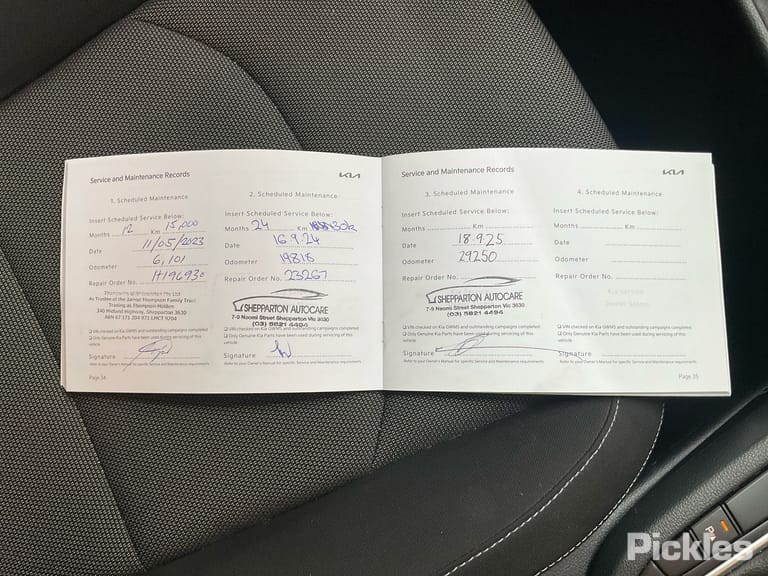 Service and Maintenance Records
KIA
1. Scheduled Maintenance
Insert Scheduled Service Below:
Months 12 Km 15,000
Date 11/05/2023
Odometer 6,101
Repair Order No.
As Trustee of the Jarrod Thompson Family Trust
Trading as Thompson Holden
Midland Highway, Shepparton 3630
VIN checked on Kia GWMS and outstanding campaigns completed
Only Genuine Kia Parts have been used during servicing of this
vehicle
Signature
Refer to your Owner's Manual for specific Service and Maintenance requirements
Page 34
2. Scheduled Maintenance
Insert Scheduled Service Below:
Months 24 Km 30k
Date 16.9.24
Odometer 19818
Repair Order No. 23267
SHEPPARTON AUTOCARE
7-9 Naomi Street Shepparton Vic 3630
(03) 5821 4494
VIN checked on Kia GWMS and outstanding campaigns completed
Only Genuine Kia Parts have been used during servicing of this
vehicle
Signature
Refer to your Owner's Manual for specific Service and Maintenance requirements
Service and Maintenance Records
KIA
3. Scheduled Maintenance
Insert Scheduled Service Below:
Months Km
Date 18.9.25
Odometer 29250
Repair Order No.
SHEPPARTON AUTOCARE
7-9 Naomi Street Shepparton Vic 3630
(03) 5821 4494
VIN checked on Kia GWMS and outstanding campaigns completed
Only Genuine Kia Parts have been used during servicing of this
vehicle
Signature
Refer to your Owner's Manual for specific Service and Maintenance requirements
4. Scheduled Maintenance
Insert Scheduled Service Below:
Months Km
Date
Odometer
Repair Order No.
VIN checked on Kia GWMS and outstanding campaigns completed
Only Genuine Kia Parts have been used during servicing of this
vehicle
Signature
Refer to your Owner's Manual for specific Service and Maintenance requirements
Page 35
Pickles